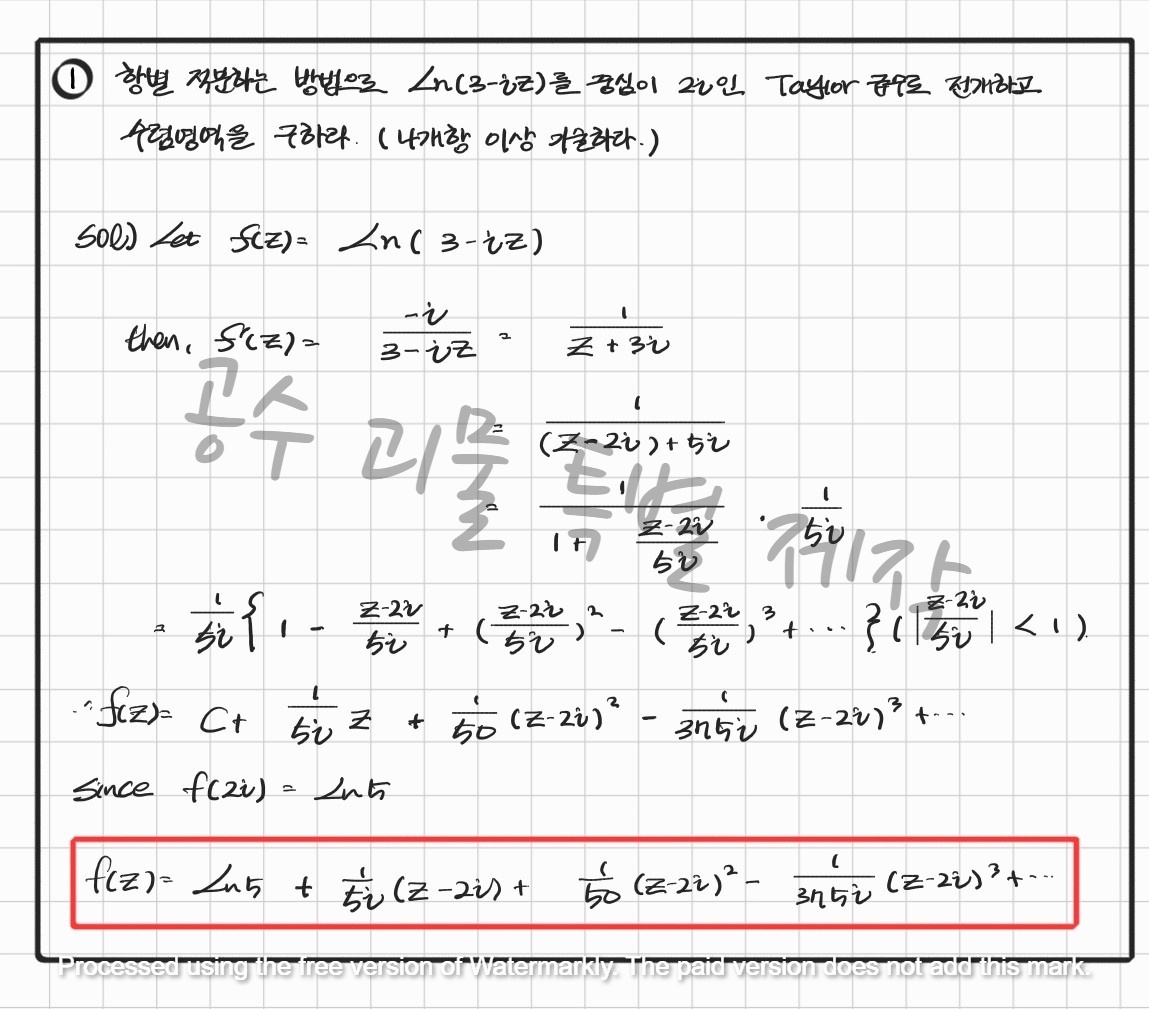 ① 항별 적분하는 방법으로 Ln(3-iz)를 중심이 2i인 Taylor 급수로 전개하고
수렴영역을 구하라. (나개항 이상 기술하라.)
sol) Let f(z)= Ln( 3-iz)
then, f'(z)= -i/(3-iz) = 1/(z+3i)
= 1/((z-2i)+5i)
= 1/(1+ (z-2i)/(5i)) · 1/(5i)
= 1/(5i) { 1 - (z-2i)/(5i) + ((z-2i)/(5i))² - ((z-2i)/(5i))³ + ··· } ( |(z-2i)/(5i)| < 1 )
∴ f(z)= C+ 1/(5i) z + 1/50 (z-2i)² - 1/(375i) (z-2i)³ +···
since f(2i) = Ln5
f(z)= Ln5 + 1/(5i) (z-2i) + 1/50 (z-2i)² - 1/(375i) (z-2i)³ +···
공수 괴물 특별 제작
Processed using the free version of Watermarkly. The paid version does not add this mark.